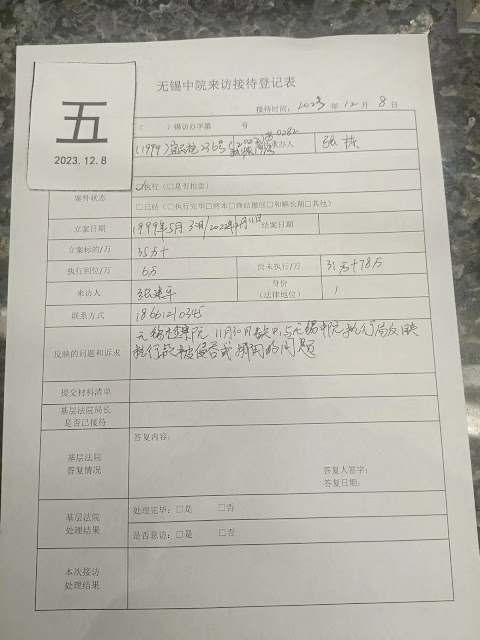 无锡中院来访接待登记表
五
2023.12.8
接待时间：2023 年 12 月 8 日
（ ）锡访办字第 号
(1999)宜 执 236号
0282
承办人
张栋
案件状态
执行（□是否拍卖）
□已结（□执行完毕□终本□终结撤回□和解长期□其他）
立案日期
1999年5月3日/2022年 月11日
结案日期
立案标的/万
35万+
执行到位/万
6万
尚未执行/万
31万+78万
来访人
张建平
身份
（法律地位）
联系方式
18661210345
反映的问题和诉求
无锡 察院 11月30日 与无锡中院执行局反映
执行款被侵吞或挪用的问题
提交材料清单
基层法院局长
是否已接待
基层法院
答复情况
答复内容：
答复人签字：
答复日期：
基层法院
处理结果
处理完毕：□是 □否
是否息访：□是 □否
本次接访
处理结果